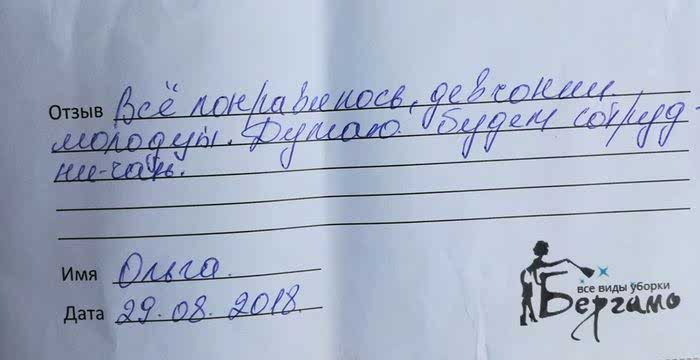 Отзыв Всё понравилось, девчонки
молодцы. Думаю будем сотруд
ни-чать.
Имя Ольга.
Дата 29.08.2018.
все виды уборки
Бергамо